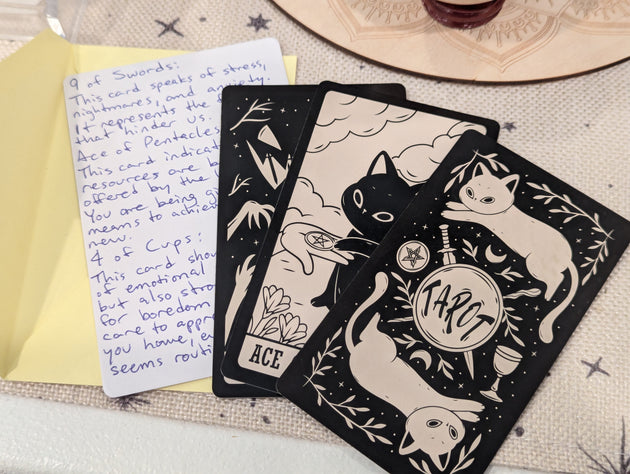 9 of Swords:
This card speaks of stress,
nightmares, and anxiety.
It represents the
that hinder us.
Ace of Pentacles
This card indicat
resources are b
offered by the
You are being gi
means to achie
new.
4 of Cups:
This card sho
of emotional
but also stro
for boredom
care to appre
you have, e
seems routi
ACE
TAROT